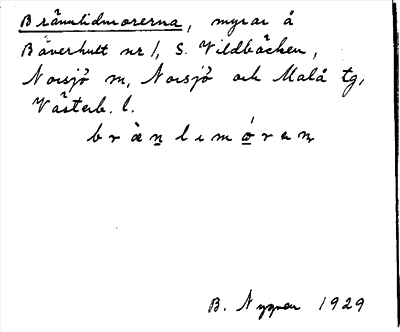 Brännlidmorerna, myrar å
Bäverhult nr 1, S. Vildbäcken,
Norsjö sn, Norsjö och Malå tg,
Västerb. l.
bräṉlımo̲ŕeṉ
B. 1929